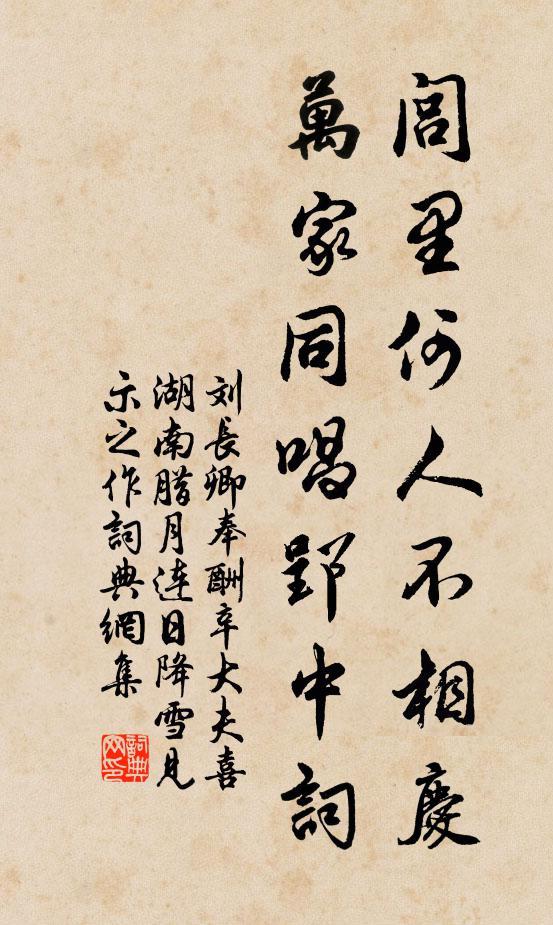 閭里何人不相慶
萬家同唱郢中詞
刘長卿奉酬辛大夫喜
湖南腊月連日降雪見
示之作詞典網集
詞典
网印